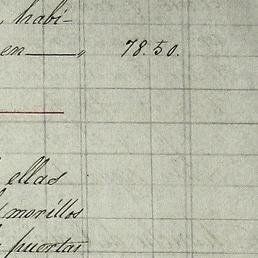 , habi-
en — „ 78.50.
ellas
morillos
puertas